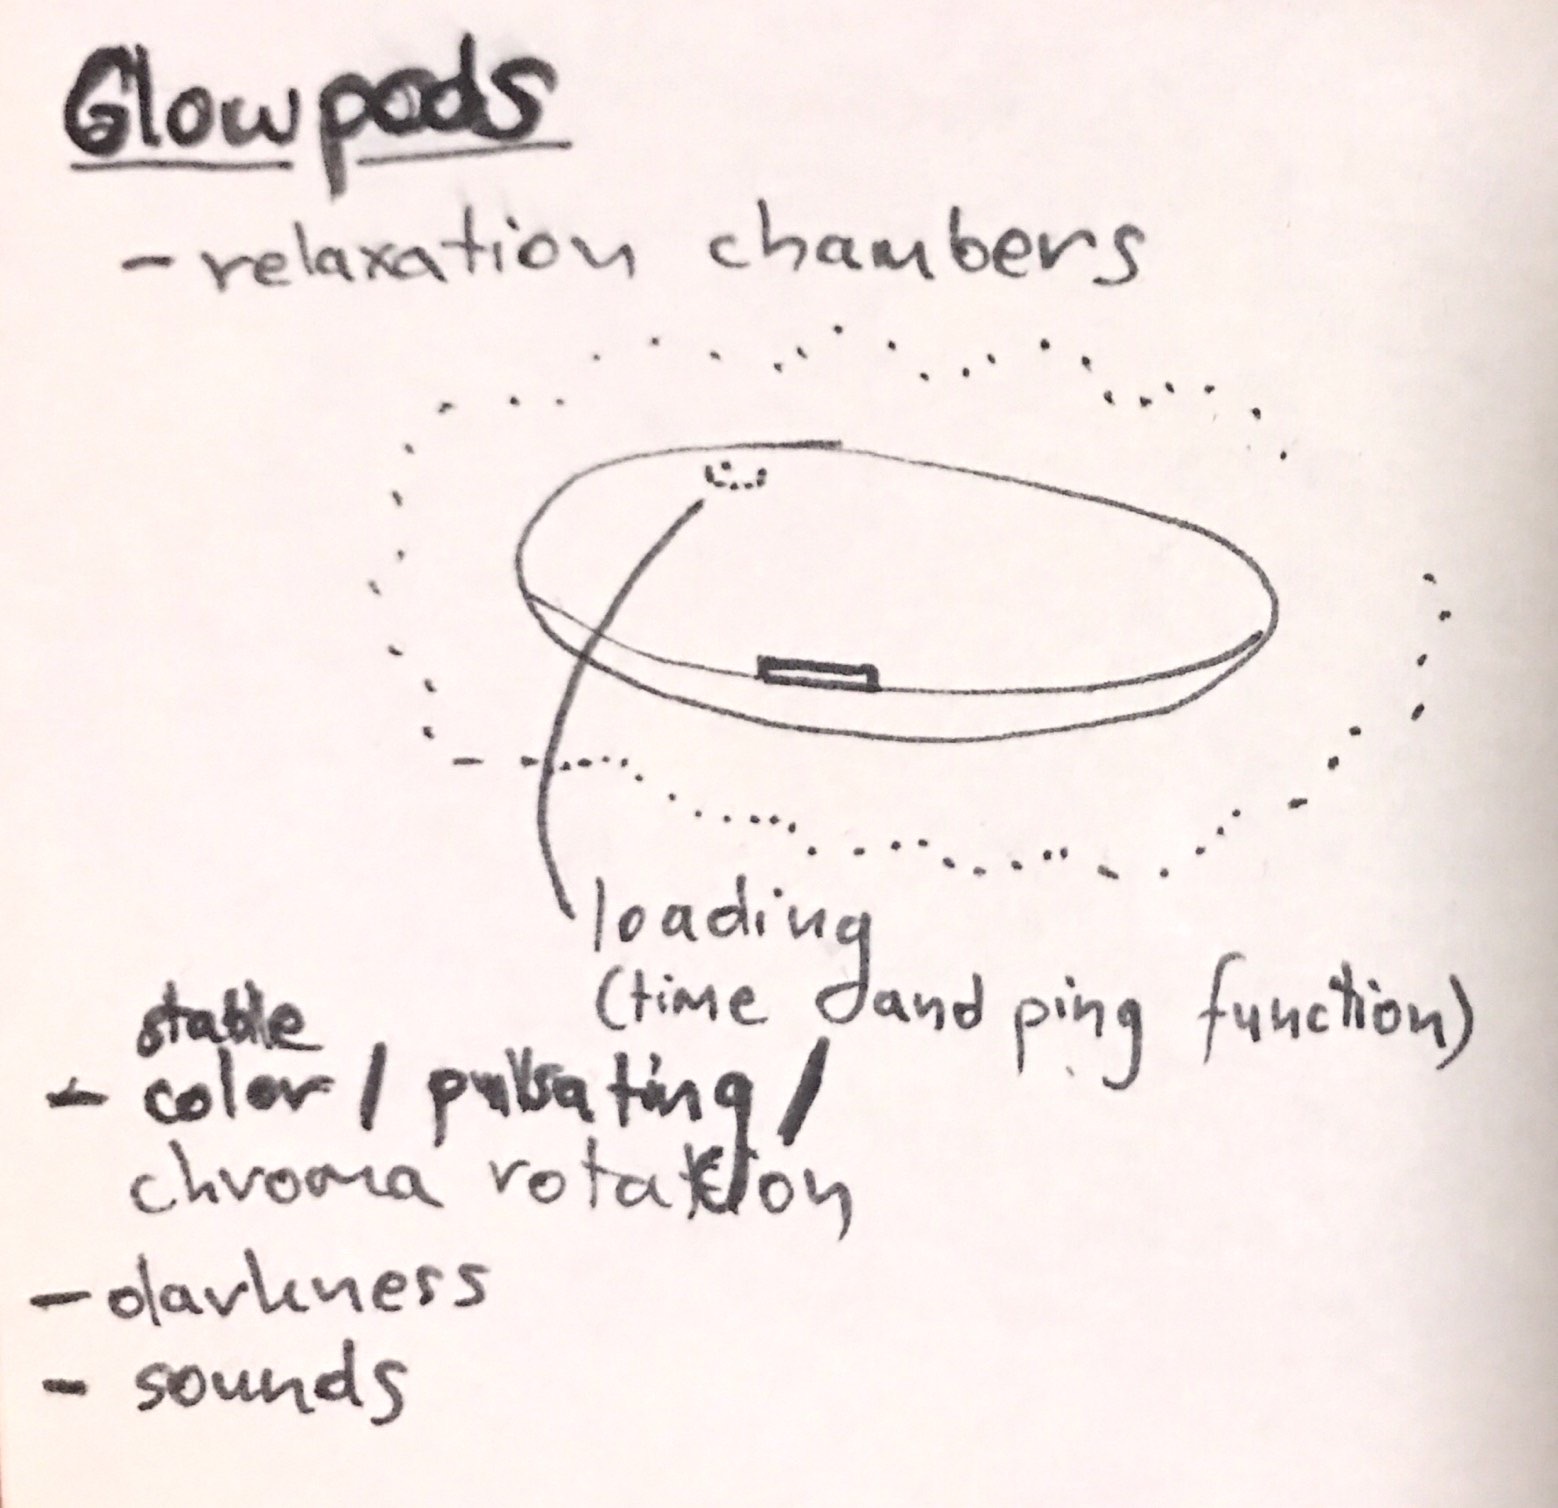 Glowpods
- relaxation chambers
loading
(time and ping function)
stable
- color / pulsating /
chroma rotation
- darkness
- sounds